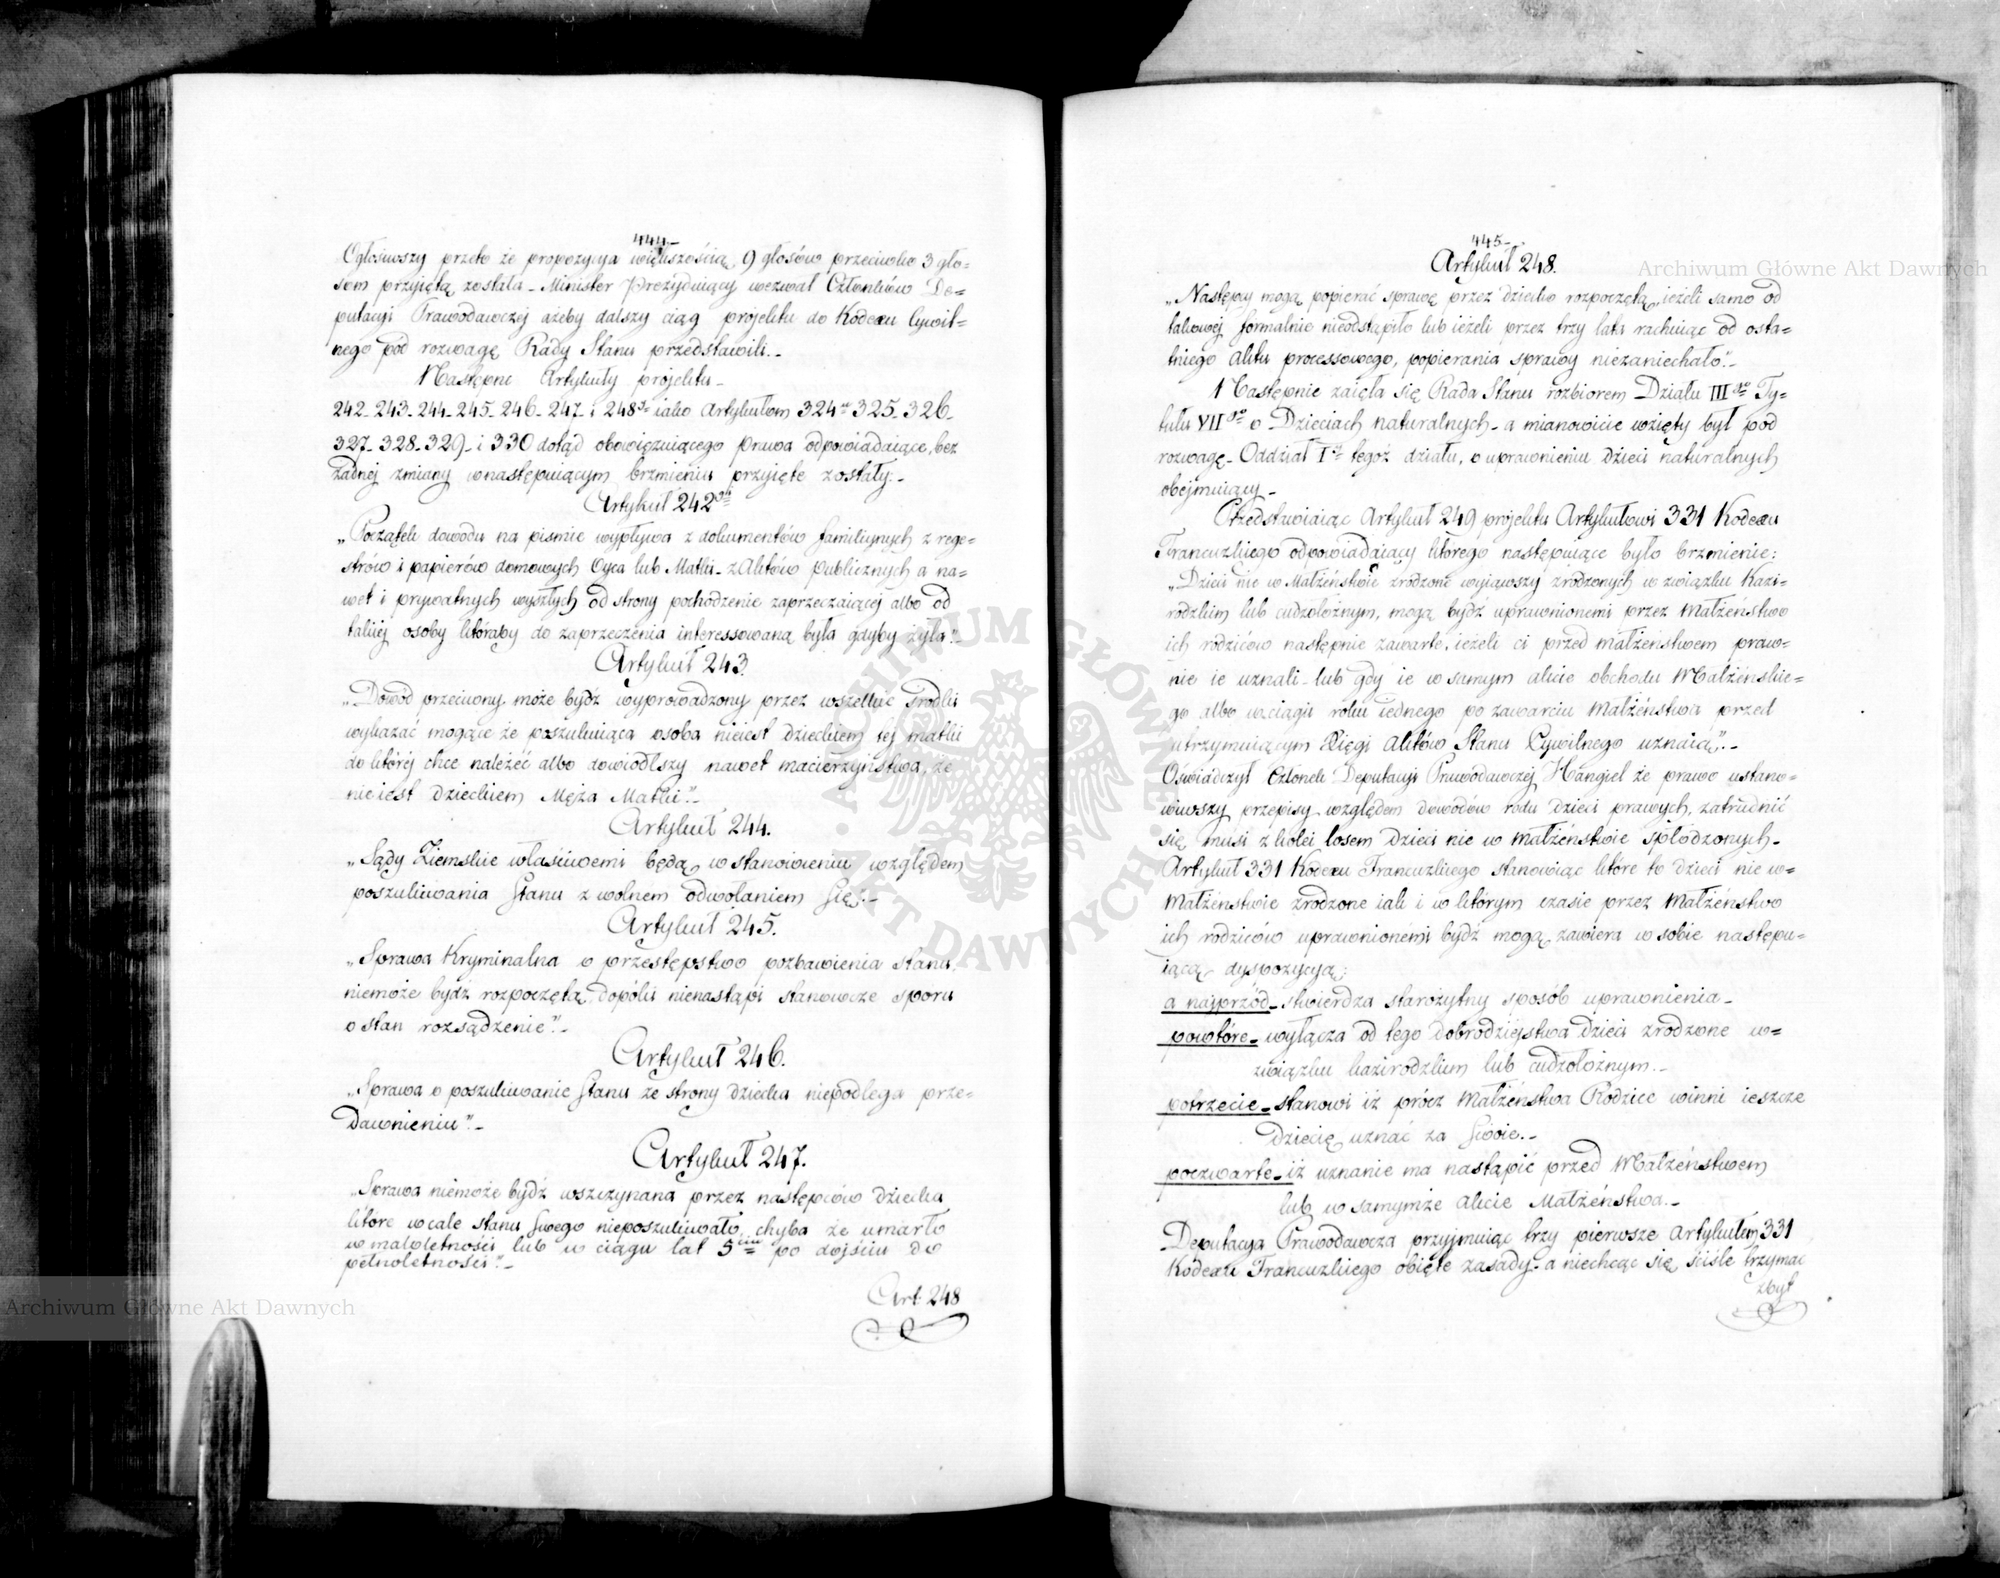 444.
Ogłosiwszy przeto że propozycya większością 9 głosów przeciwko 3 gło=
som przyiętą została_ Minister Prezyduiący wezwał Członków De=
putacyi Prawodawczej ażeby dalszy ciąg projektu do Kodexu Cywil=
nego pod rozwagę Rady Stanu przedstawili._
Następne Artykuły projektu_
242_243_244_245_246_247_ i 248 iako Artykułom 324 325_326_
327_328_329_ i 330 dotąd obowięzuiącego prawa odpowiadaiące, bez
żadnej zmiany w następuiącym brzmieniu przyięte zostały:_
Artykuł 242
„Początek dowodu na piśmie wypływa z dokumentów familiynych z reie=
strów i papierów domowych Oyca lub Matki_ z Aktów publicznych a na=
wet i prywatnych wyszłych od strony pochodzenie zaprzeczaiącej albo od
takiej osoby któraby do zaprzeczenia interessowaną była gdyby żyła"._
Artykuł 243.
„Dowód przeciwny może bydź wyprowadzony przez wszelkie środki
wykazać mogące że poszukuiąca osoba nieiest dzieckiem tej matki
do której chce należeć albo dowiódłszy nawet macierzyństwa, że
nieiest dzieckiem Męża Matki"._
Artykuł 244.
„Sądy Ziemskie właściwemi będą w stanowieniu względem
poszukiwania Stanu z wolnem odwołaniem się"._
Artykuł 245.
„Sprawa Kryminalna o przestępstwo pozbawienia Stanu,
niemoże bydź rozpoczętą, dopóki nienastąpi stanowcze sporu
o stan rozsądzenie"._
Artykuł 246.
„Sprawa o poszukiwanie Stanu ze strony dziecka niepodlega prze=
dawnieniu"._
Artykuł 247.
„Sprawa niemoże bydź wszczynana przez następców dziecka
które wcale stanu swego nieposzukiwało, chyba że umarło
w małoletności, lub w ciągu lat 5ciu po dojściu do
pełnoletności"._
Art. 248
445.
Artykuł 248.
„Następcy mogą popierać sprawę przez dziecko rozpoczętą, ieżeli samo od
takowej formalnie nieodstąpiło lub ieżeli przez trzy lata rachuiąc od osta=
tniego aktu processowego, popierania sprawy niezaniechało"._
Następnie zaięła się Rada Stanu rozbiorem Działu IIIgo Ty=
tułu VIIgo o Dzieciach naturalnych_ a mianowicie wzięty był pod
rozwagę_ Oddział I tegoż działu, o uprawnieniu dzieci naturalnych
obejmuiący_
Przedstawiaiąc Artykuł 249 projektu Artykułowi 331 Kodexu
Francuzkiego odpowiadaiący którego następuiące było brzmienie:
„Dzieci nie w Małżeństwie zrodzone wyiąwszy zrodzonych w związku Kazi=
rodzkim lub cudzołożnym, mogą bydź uprawnionemi przez Małżeństwo
ich rodziców następnie zawarte, ieżeli ci przed małżeństwem praw=
nie ie uznali_ lub gdy ie w samym akcie obchodu Małżeńskie=
go albo w ciągu roku iednego po zawarciu Małżeństwa przed
utrzymuiącym Księgi Aktów Stanu Cywilnego uznaią"._
Oświadczył Członek Deputacyi Prawodawczej Hangiel że prawo ustano=
wiwszy przepisy względem dowodów rodu dzieci prawych, zatrudnić
się musi z kolei losem dzieci nie w małżeństwie spłodzonych_
Artykuł 331 Kodexu Francuzkiego stanowiąc które to dzieci nie w=
Małżeństwie zrodzone iak i w którym czasie przez Małżeństwo
ich rodziców uprawnionemi bydź mogą, zawiera w sobie następu=
iącą dyspozycyą:
a najprzód_ stwierdza starożytny sposób uprawnienia_
powtóre_ wyłącza od tego dobrodziejstwa dzieci zrodzone w=
związku kazirodzkim lub cudzołożnym._
potrzecie_ stanowi iż prócz Małżeństwa Rodzice winni ieszcze
dziecię uznać za swoie._
poczwarte_ iż uznanie ma nastąpić przed Małżeństwem
lub w samymże akcie Małżeństwa._
Deputacya Prawodawcza przyjmuiąc trzy pierwsze Artykułem 331
Kodexu Francuzkiego obięte zasady_ a niechcąc się ściśle trzymać
zbyt
Archiwum Główne Akt Dawnych
Archiwum Główne Akt Dawnych
ARCHIWUM GŁÓWNE AKT DAWNYCH